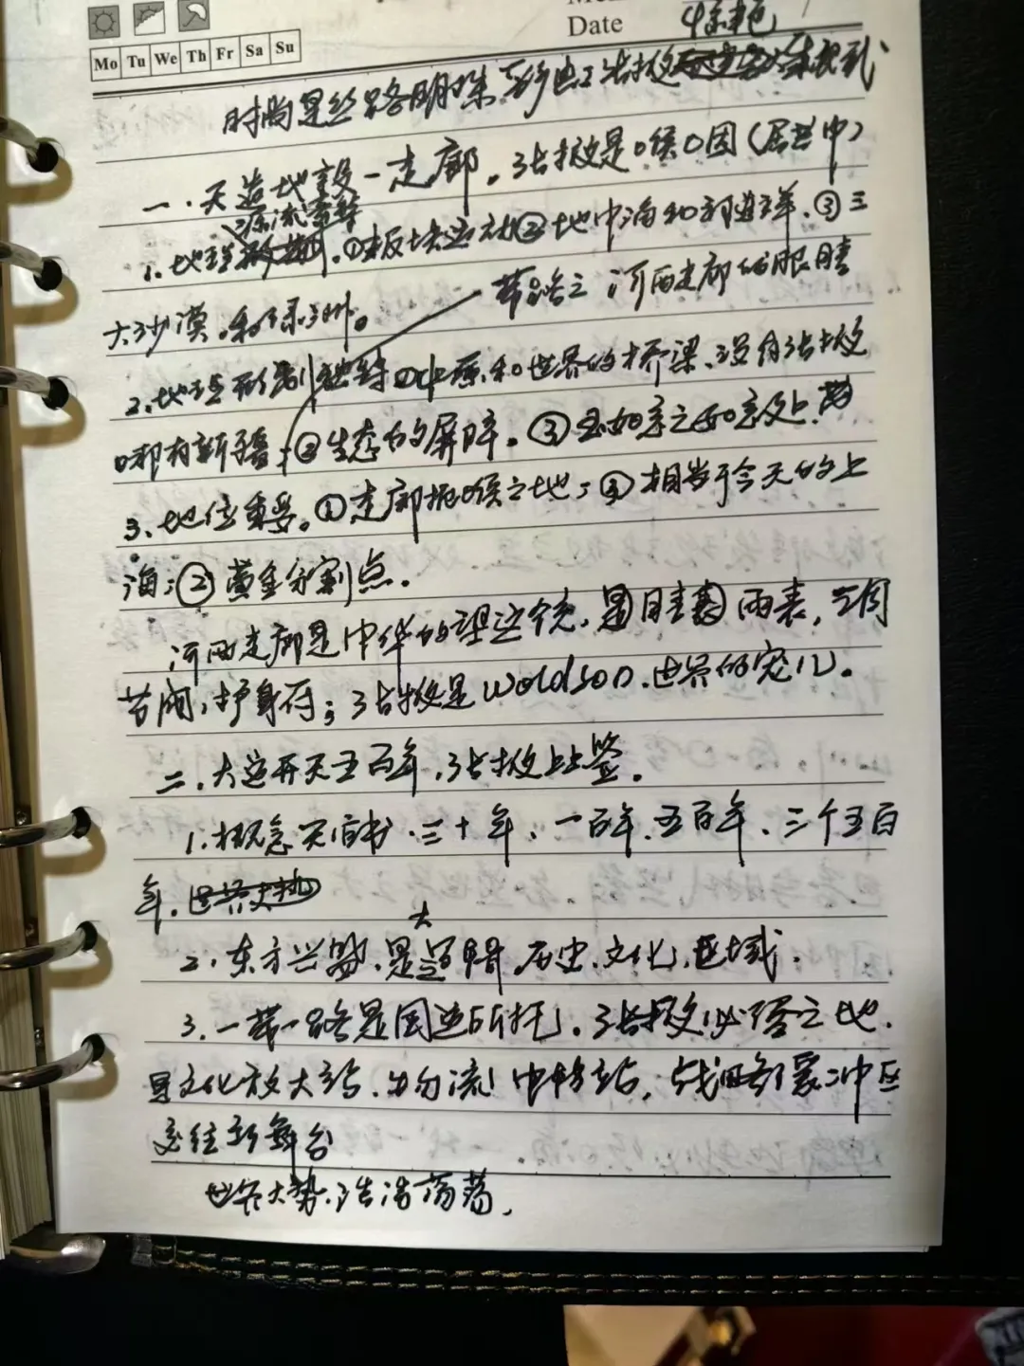 Date
Mo Tu We Th Fr Sa Su
时尚是丝路明珠 张掖
一.天造地设一走廊。张掖是咽喉(居其中)
1.地理 ①板块运动②地中海和 ③三
大沙漠和绿洲。 带路之 河西走廊的眼睛
2.地理形制独特①中原和世界的桥梁、没有张掖
哪有新疆;②生态的屏障。③
3、地位重要。①走廊咽喉之地;③相当于今天的上
海;②黄金分割点.
河西走廊是中华的望远镜,是 雨表,
节阀,护身符;张掖是woldson.世界的宠儿。
二.大运开天五百年,张掖上上签.
1.概念 三十年、一百年、五百年、三个五百
年.
2.东方兴盛、是大逻辑 历史.文化.区域.
3.一带一路是国运所托。张掖必经之地.
是文化放大站.物流中转站,战略缓冲区
交往新舞台
世界大势.浩浩荡荡,